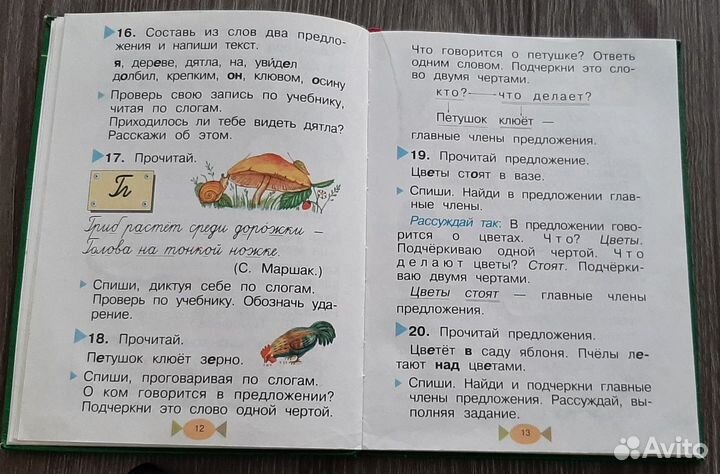 16. Составь из слов два предло-
жения и напиши текст.
я, дереве, дятла, на, увидел
долбил, крепким, он, клювом, осину
Проверь свою запись по учебнику,
читая по слогам.
Приходилось ли тебе видеть дятла?
Расскажи об этом.
17. Прочитай.
Гг
Гриб растёт среди дорожки –
Голова на тонкой ножке.
(С. Маршак.)
Спиши, диктуя себе по слогам.
Проверь по учебнику. Обозначь уда-
рение.
18. Прочитай.
Петушок клюёт зерно.
Спиши, проговаривая по слогам.
О ком говорится в предложении?
Подчеркни это слово одной чертой.
12
Что говорится о петушке? Ответь
одним словом. Подчеркни это сло-
во двумя чертами.
кто? что делает?
Петушок клюёт —
главные члены предложения.
19. Прочитай предложение.
Цветы стоят в вазе.
Спиши. Найди в предложении глав-
ные члены.
Рассуждай так: В предложении гово-
рится о цветах. Что? Цветы.
Подчёркиваю одной чертой. Что
делают цветы? Стоят. Подчёрки-
ваю двумя чертами.
Цветы стоят — главные члены
предложения.
20. Прочитай предложения.
Цветёт в саду яблоня. Пчёлы ле-
тают над цветами.
Спиши. Найди и подчеркни главные
члены предложения. Рассуждай, вы-
полняя задание.
13
Avito